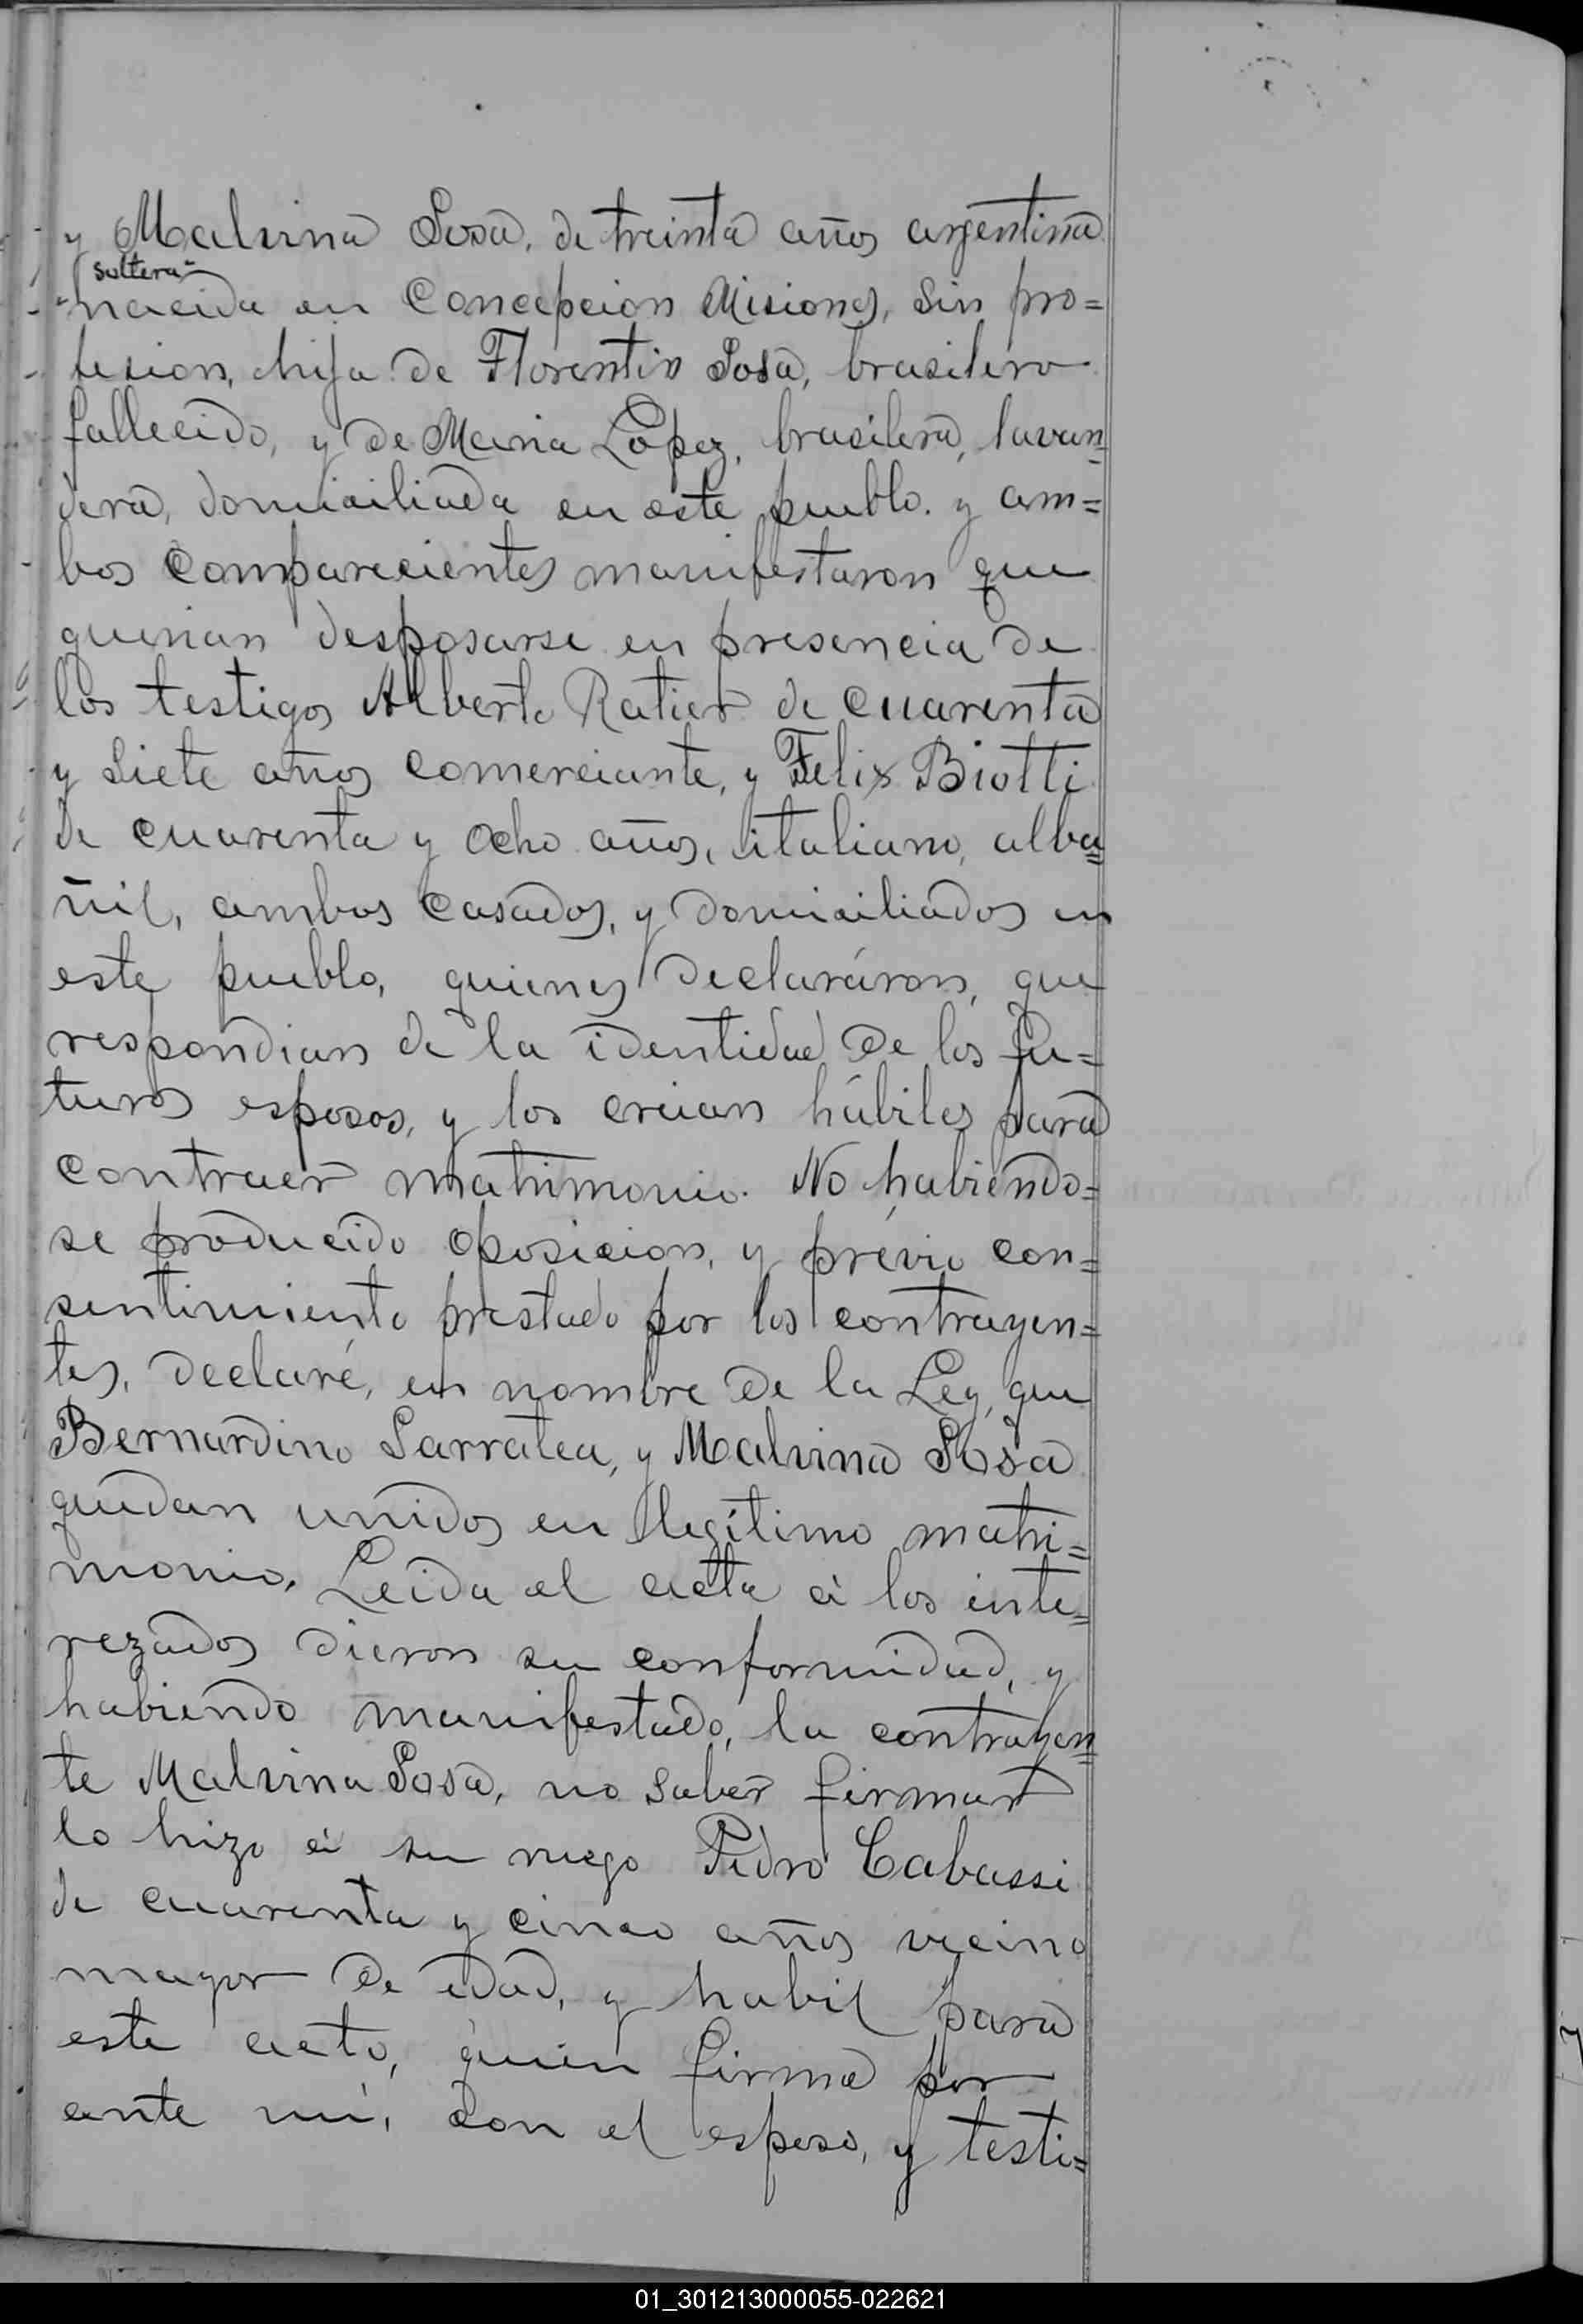 y Malvina Sosa, de treinta años argentina
soltera
nacida en Concepcion Misiones, sin pro=
fesion, hija de Florentin Sosa, brasilero
fallecido, y de Maria Lopez, brasilera, lavan=
dera, domiciliada en este pueblo. y am=
bos comparecientes manifestaron que
querian desposarse en presencia de
los testigos Alberto Ratier de cuarenta
y siete años comerciante, y Felix Biotti
de cuarenta y ocho años, italiano, alba=
ñil, ambos casados, y domiciliados en
este pueblo, quienes declaráron, que
respondian de la identidad de los fu=
turos esposos, y los creian hábiles para
contraer matrimonio. No habiendo=
se producido oposicion, y prévio con=
sentimiento prestado por los contrayen=
tes, declaré, en nombre de la Ley, que
Bernardino Sarratea, y Malvina Sosa
quedan unidos en legítimo matri=
monio. Leida el acta á los inte=
rezados dieron su conformidad, y
habiendo manifestado, la contrayen=
te Malvina Sosa, no saber firmar
lo hizo á su ruego Pedro Cabassi
de cuarenta y cinco años vecino
mayor de edad, y habil para
este acto, quien firma por
ante mí, con el esposo, y testi=
01_301213000055-022621